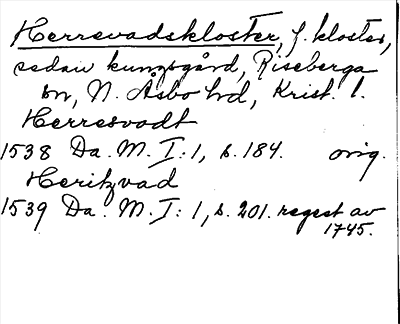 Herrevadskloster, f. kloster,
sedan kungsgård, Riseberga
sn, N. Åsbo hd, Krist. l.
Herresvadt
1538 Da. M. I: 1, s. 184. orig.
Heritzvad
1539 Da. M. I: 1, s. 201. regest av
1745.